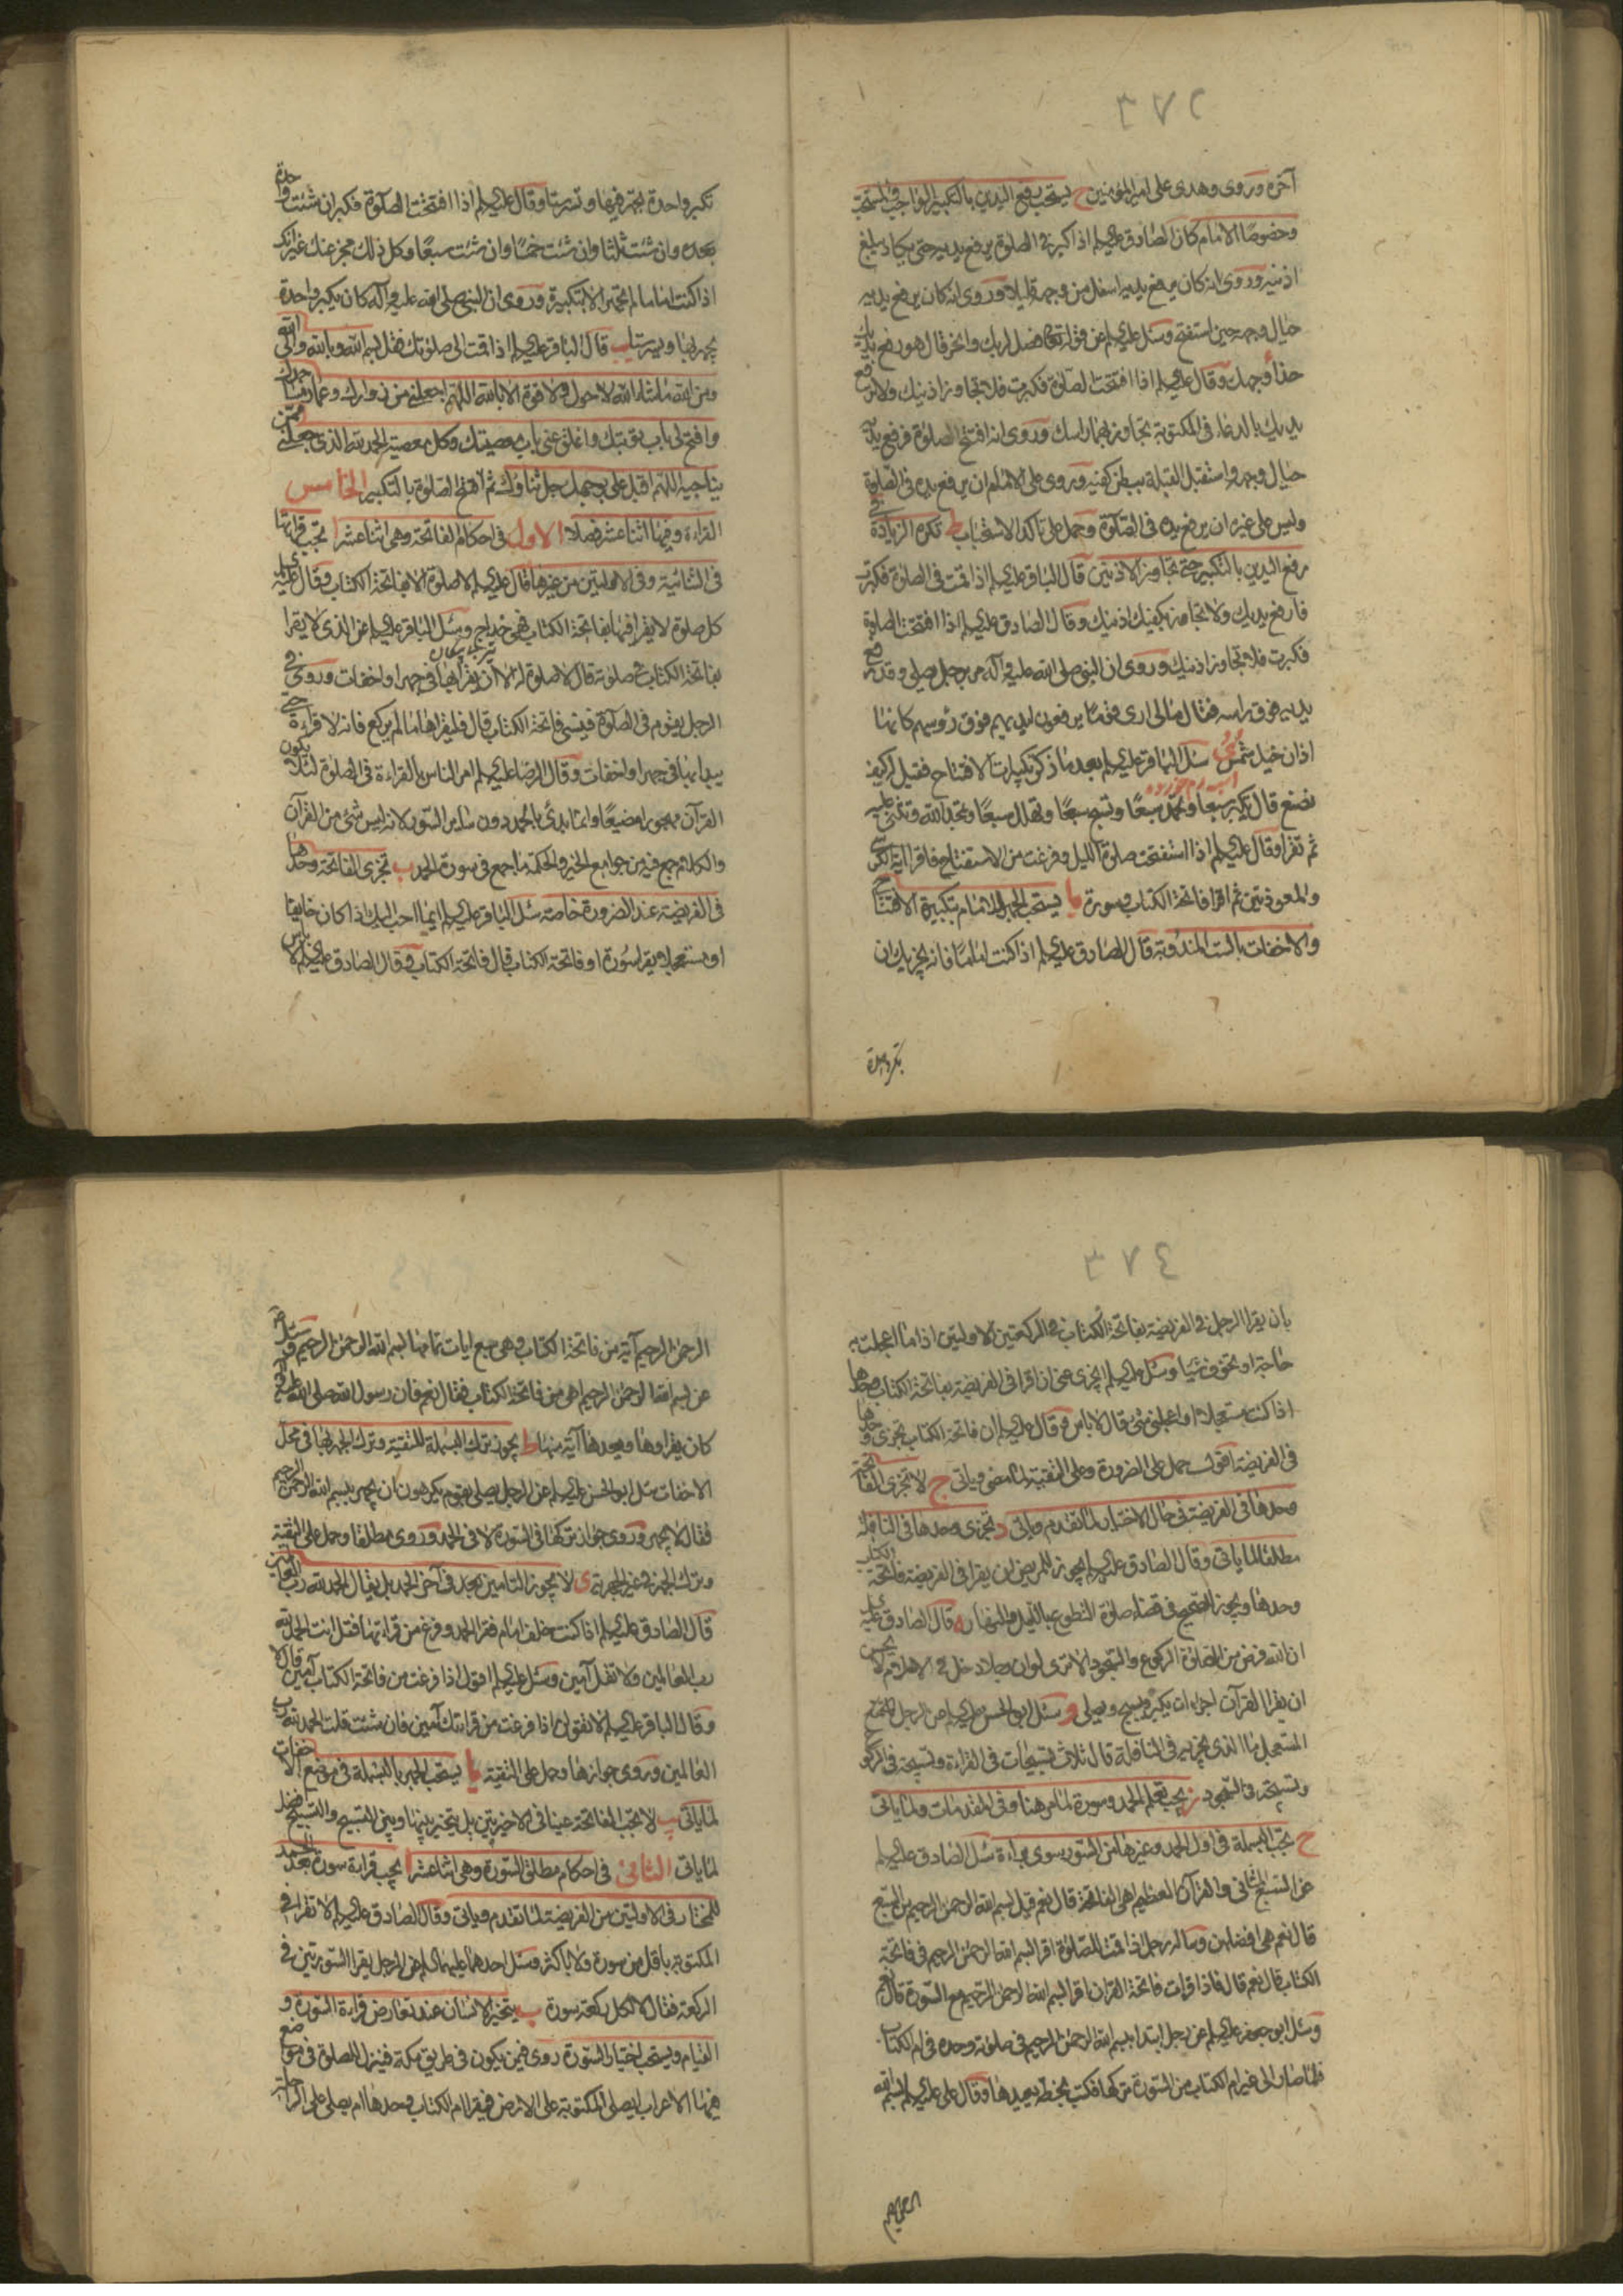 ٣٧٢
آخره وروى وهدى على امير المؤمنين ح يستحب رفع اليدين بالتكبير الواجب والمستحب
وخصوصا الامام كان الصادق عليه السلم اذا كبر في الصلوة يرفع يديه حتى يكاد يبلغ
اذنيه وروى انه كان يرفع يديه اسفل من وجهه قليلا وروى انه كان يرفع يديه
حيال وجهه حين استفتح وسئل عليه السلم عن قوله تعالى فصل لربك وانحر قال هو رفع يديك
حذاء وجهك وقال عليه السلم اذا افتتحت الصلوة فكبرت فلا تجاوز اذنيك ولا ترفع
يديك بالدعاء في المكتوبة تجاوز بهما راسك وروى انه افتتح الصلوة فرفع يديه
حيال وجهه واستقبل القبلة ببطن كفيه وروى على الامام ان يرفع يده في الصلوة
وليس على غيره ان يرفع يده في الصلوة وحمل على تاكد الاستحباب ط تكره الزيادة في
رفع اليدين بالتكبير حتى تجاوز الاذنين قال الباقر عليه السلم اذا قمت في الصلوة فكبرت
فارفع يديك ولا تجاوز بكفيك اذنيك وقال الصادق عليه السلم اذا افتتحت الصلوة
فكبرت فلا تجاوز اذنيك وروى ان النبي صلى الله عليه وآله مر برجل يصلي وقد رفع
يديه فوق راسه فقال مالى ارى قوما يرفعون ايديهم فوق رؤسهم كانها
اذان خيل شمس ى سئل الباقر عليه السلم بعد ما ذكر تكبيرات الافتتاح فقيل له كيف
نصنع قال تكبر سبعا وتحمد سبعا وتسبح سبعا وتهلل سبعا وتحمد الله وتثنى عليه
ثم تقرا وقال عليه السلم اذا استفتحت صلوة الليل وفرغت من الاستفتاح فاقرا اية الكرسي
والمعوذتين ثم اقرا فاتحة الكتاب وسورة يا يستحب الجهر للامام بتكبيرة الافتتاح
والاخفات بالست المندوبة قال الصادق عليه السلم اذا كنت اماما فانه يجزيك ان
تكبر واحدة
تكبر واحدة تجهر فيها وتسر ستا وقال عليه السلم اذا افتتحت الصلوة فكبر ان شئت واحدة
وان شئت ثلثا وان شئت خمسا وان شئت سبعا وكل ذلك مجز عنك غير انك
اذا كنت اماما لم تجهر الا بتكبيرة وروى ان النبي صلى الله عليه وآله كان يكبر واحدة
يجهر بها ويسر ستا يب قال الباقر عليه السلم اذا قمت الى صلوتك فقل بسم الله وبالله والى الله
ومن الله ما شاء الله لا حول ولا قوة الا بالله اللهم اجعلني من زوارك وعمار مساجدك
وافتح لى باب توبتك واغلق عنى باب معصيتك وكل معصية الحمد لله الذى جعلني ممن
يناجيه اللهم اقبل على بوجهك جل ثناؤك ثم افتتح الصلوة بالتكبير الخامس
القراءة وفيها اثنا عشر فصلا الاول في احكام الفاتحة وهى اثنا عشر ا تجب قراءتها
في الثنائية وفي الاولتين من غيرها قال عليه السلم لا صلوة الا بفاتحة الكتاب وقال عليه السلم
كل صلوة لا يقرا فيها بفاتحة الكتاب فهى خداج وسئل الباقر عليه السلم عن الذى لا يقرا
بفاتحة الكتاب في صلوته قال لا صلوة له الا ان يقرا بها في جهر او اخفات وروى في
الرجل يقوم في الصلوة فينسى فاتحة الكتاب قال فليقراها ما لم يركع فانه لا قراءة حتى
يبدا بها في جهر او اخفات وقال الرضا عليه السلم امر الناس بالقراءة في الصلوة لئلا يكون
القرآن مهجورا مضيعا وانما بدئ بالحمد دون ساير السور لانه ليس شئ من القرآن
والكلام جمع فيه من جوامع الخير والحكمة ما جمع في سورة الحمد ب تجزى الفاتحة وحدها
في الفريضة عند الضرورة خاصة سئل الباقر عليه السلم ايما احب اليك اذا كان خايفا
او مستعجلا يقرا سورة او فاتحة الكتاب قال فاتحة الكتاب وقال الصادق عليه السلم لا باس
٣٧٤
بان يقرا الرجل في الفريضة بفاتحة الكتاب في الركعتين الاولتين اذا ما اعجلت به
حاجة او تخوف شيئا وسئل عليه السلم ايجزى عنى ان اقرا في الفريضة بفاتحة الكتاب وحدها
اذا كنت مستعجلا او اعجلني شئ قال لا باس وقال عليه السلم ان فاتحة الكتاب تجزى وحدها
في الفريضة اقول حمل على الضرورة وعلى التقية لما مضى وياتى ج لا تجزى الفاتحة
وحدها في الفريضة في حال الاختيار لما تقدم وياتى د تجزى وحدها في النافلة
مطلقا لما ياتى وقال الصادق عليه السلم يجوز للمريض ان يقرا في الفريضة فاتحة الكتاب
وحدها ويجوز للصحيح في قضاء صلوة التطوع بالليل والنهار ه قال الصادق عليه السلم
ان الله فرض من الصلوة الركوع والسجود الا ترى لو ان رجلا دخل في الاسلام لا يحسن
ان يقرا القرآن اجزاه ان يكبر ويسبح ويصلى و سئل ابو الحسن عليه السلم عن الرجل
المستعجل ما الذى يجزيه في النافلة قال ثلاث تسبيحات في القراءة وتسبيحة في الركوع
وتسبيحة في السجود ز يجب تعلم الحمد وسورة لما مر هنا وفي المقدمات ولما ياتى
ح تجب البسملة في اول الحمد وغيرها من السور سوى براءة سئل الصادق عليه السلم
عن السبع المثانى والقرآن العظيم اهى الفاتحة قال نعم قيل بسم الله الرحمن الرحيم من السبع
قال نعم هى افضلهن وساله رجل اذا قمت للصلوة اقرا بسم الله الرحمن الرحيم في فاتحة
الكتاب قال نعم قال فاذا قرات فاتحة القران اقرا بسم الله الرحمن الرحيم مع السورة قال نعم
وسئل ابو جعفر عليه السلم عن رجل ابتدا ببسم الله الرحمن الرحيم في صلوته وحده في ام الكتاب
فلما صار الى غير ام الكتاب من السورة تركها فكتب بخطه يعيدها وقال على عليه السلم بسم الله
الرحمن الرحيم
الرحمن الرحيم آية من فاتحة الكتاب وهى سبع ايات تمامها بسم الله الرحمن الرحيم وسئل
عن بسم الله الرحمن الرحيم اهى من فاتحة الكتاب فقال نعم فان رسول الله صلى الله عليه وآله
كان يقراوها ويعدها آية منها ط يجوز ترك البسملة للتقية وترك الجهر بها في محل
الاخفات سئل ابو الحسن عليه السلم عن الرجل يصلى بقوم يكرهون ان يجهر ببسم الله الرحمن الرحيم
فقال لا يجهر وروى جواز تركها في السورة لا في الحمد وروى مطلقا وحمل على التقية
وترك الجهر في غير الجهرية ى لا يجوز التامين بعد في آخر الحمد بل يقال الحمد لله رب العالمين
قال الصادق عليه السلم اذا كنت خلف امام فقرا الحمد وفرغ من قراءتها فقل انت الحمد لله
رب العالمين ولا تقل آمين وسئل عليه السلم اقول اذا فرغت من فاتحة الكتاب آمين قال لا
وقال الباقر عليه السلم لا تقولن اذا فرغت من قراءتك آمين فان شئت قلت الحمد لله رب
العالمين وروى جوازها وحمل على التقية يا يستحب الجهر بالبسملة في موضع الاخفات
لما ياتى يب لا تجب الفاتحة عينا في الاخيرتين بل يتخير بينها وبين التسبيح والتسبيح افضل
لما ياتى الثانى في احكام مطلق السورة وهى اثنا عشر ا يجب قراءة سورة بعد الحمد
للمختار في الاولتين من الفريضة لما تقدم وياتى وقال الصادق عليه السلم لا تقرا في
المكتوبة باقل من سورة ولا باكثر وسئل احدهما عليهما السلم عن الرجل يقرا السورتين في
الركعة فقال لا لكل ركعة سورة ب يتخير الانسان عند تعارض قراءة السورة و
القيام ويستحب اختيار السورة روى فيمن يكون في طريق مكة فينزل للصلوة في مواضع
فيها الاعراب ايصلى المكتوبة على الارض فيقرا ام الكتاب وحدها ام يصلى على الراحلة